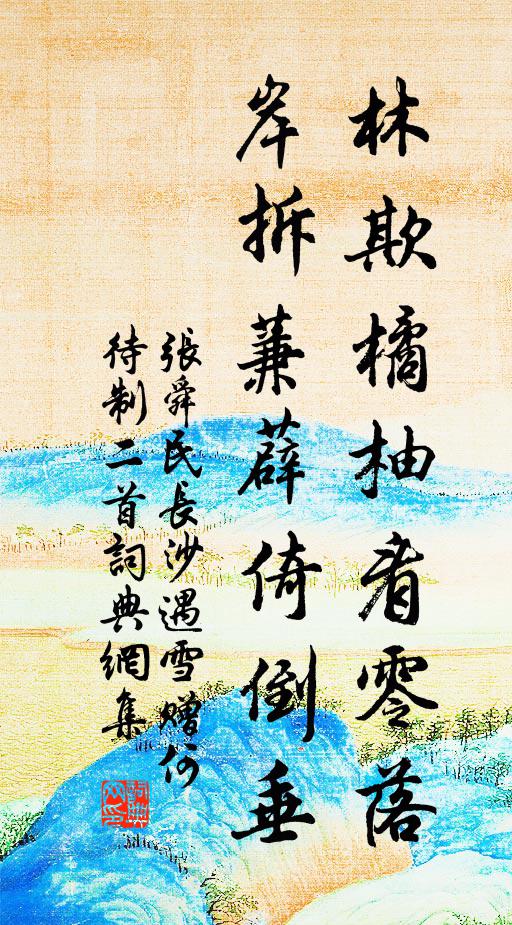 林欺橘柚看零落
岸拆蒹薜倚倒垂
張舜民長沙遇雪贈何
待制二首詞典網集